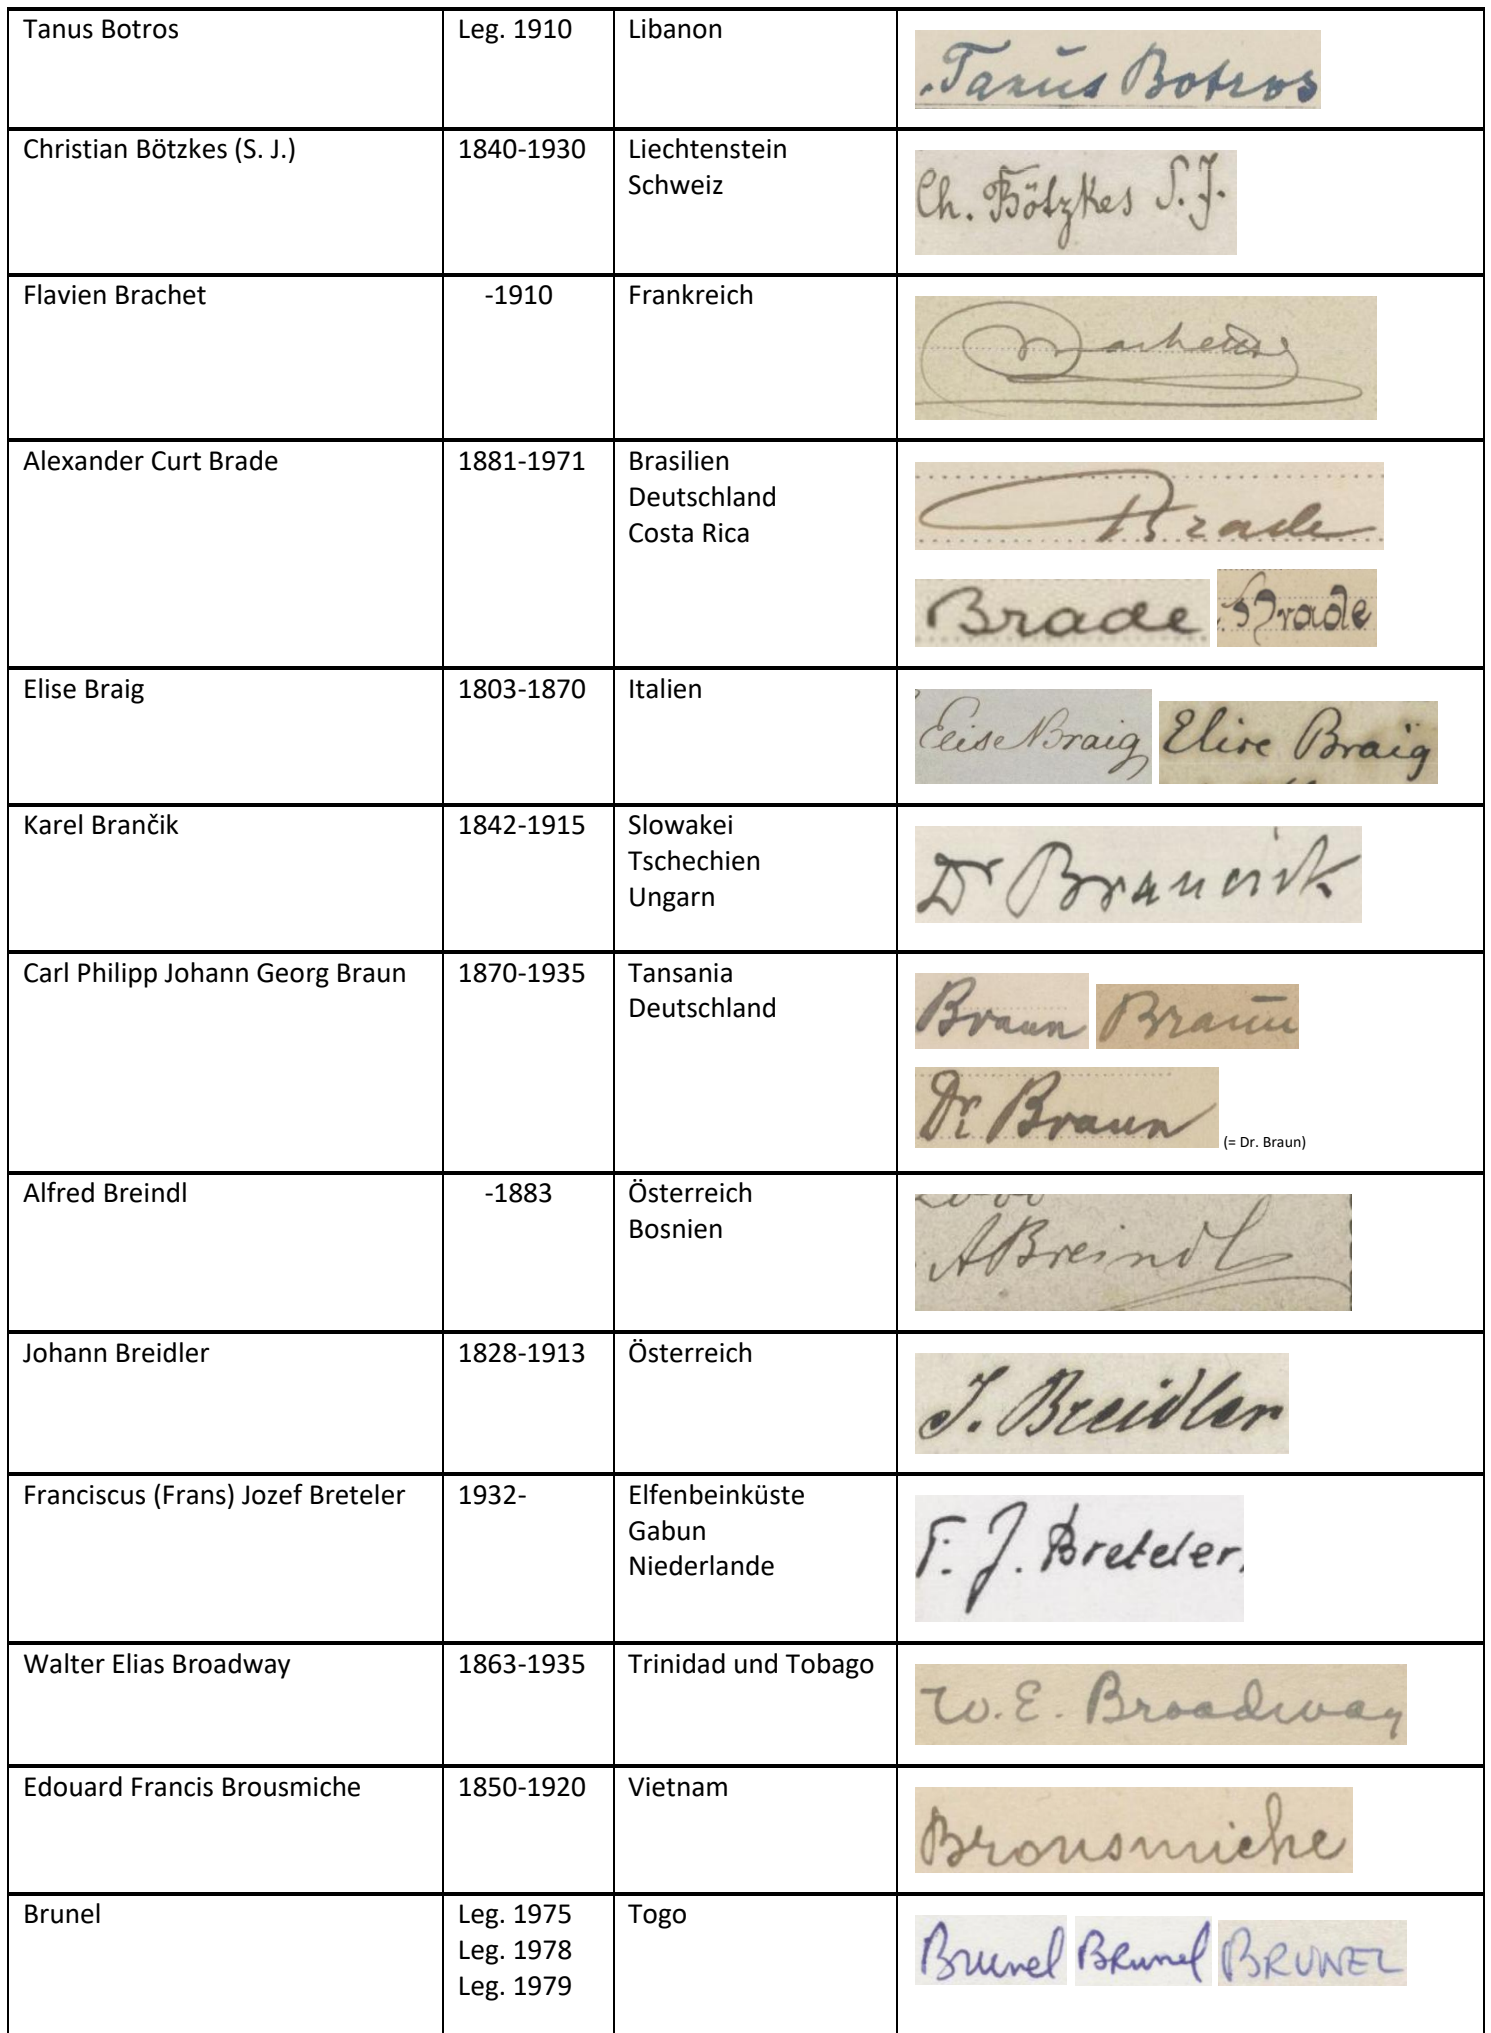 Tanus Botros Leg. 1910 Libanon Tanus Botros
Christian Bötzkes (S. J.) 1840-1930 Liechtenstein Ch. Bötzkes S. J.
Schweiz
Flavien Brachet -1910 Frankreich
Alexander Curt Brade 1881-1971 Brasilien Brade
Deutschland
Costa Rica
Brade Brade
Elise Braig 1803-1870 Italien Elise Braig Elise Braig
Karel Brančik 1842-1915 Slowakei Dr Brancsik
Tschechien
Ungarn
Carl Philipp Johann Georg Braun 1870-1935 Tansania Braun Braun
Deutschland
Dr. Braun (= Dr. Braun)
Alfred Breindl -1883 Österreich ABreindl
Bosnien
Johann Breidler 1828-1913 Österreich J. Breidler
Franciscus (Frans) Jozef Breteler 1932- Elfenbeinküste F. J. Breteler.
Gabun
Niederlande
Walter Elias Broadway 1863-1935 Trinidad und Tobago W. E. Broadway
Edouard Francis Brousmiche 1850-1920 Vietnam Brousmiche
Brunel Leg. 1975 Togo Brunel BRunel BRUNEL
Leg. 1978
Leg. 1979